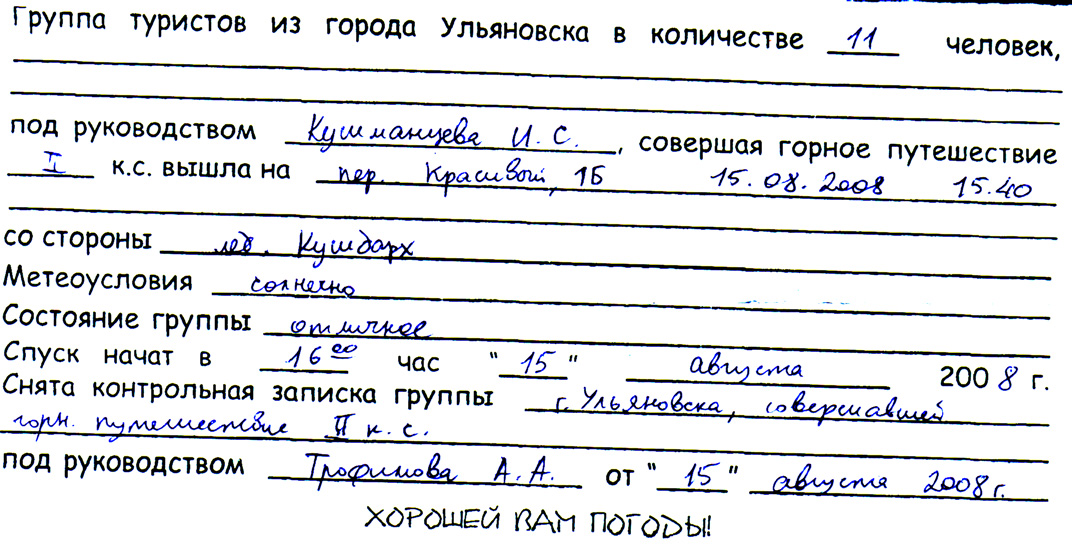 Группа туристов из города Ульяновска в количестве 11 человек,
под руководством Кушманцева И.С., совершая горное путешествие
I к.с. вышла на пер. Красивый, 1Б 15.08.2008 15.40
со стороны лев. Кушдарх
Метеоусловия солнечно
Состояние группы отличное
Спуск начат в 16 00 час "15" августа 2008 г.
Снята контрольная записка группы г. Ульяновска, совершавшей
горн. путешествие II к.с.
под руководством Трофимова А.А. от "15" августа 2008 г.
ХОРОШЕЙ ВАМ ПОГОДЫ!